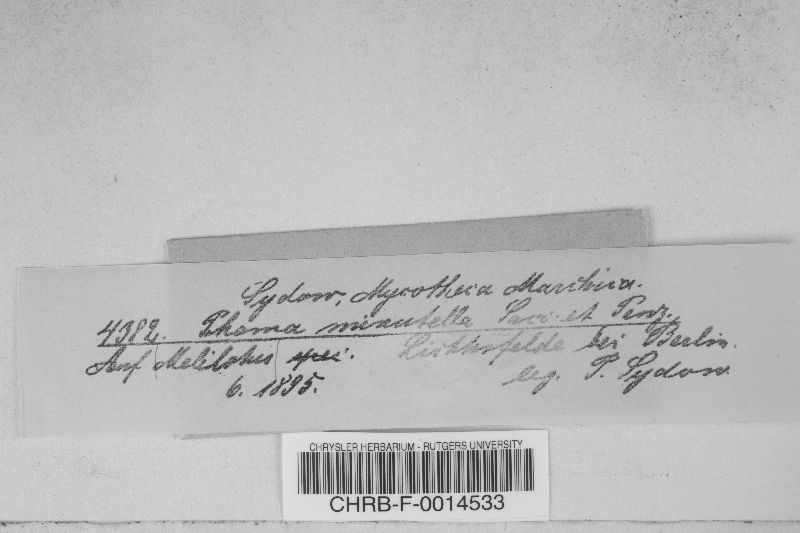 Sydow, Mycotheca Marchica.
4382. Phoma minutella Sacc. et Penz.
Auf Melilotus spec. Lichterfelde bei Berlin.
6. 1895. leg. P. Sydow
CHRYSLER HERBARIUM - RUTGERS UNIVERSITY
CHRB-F-0014533